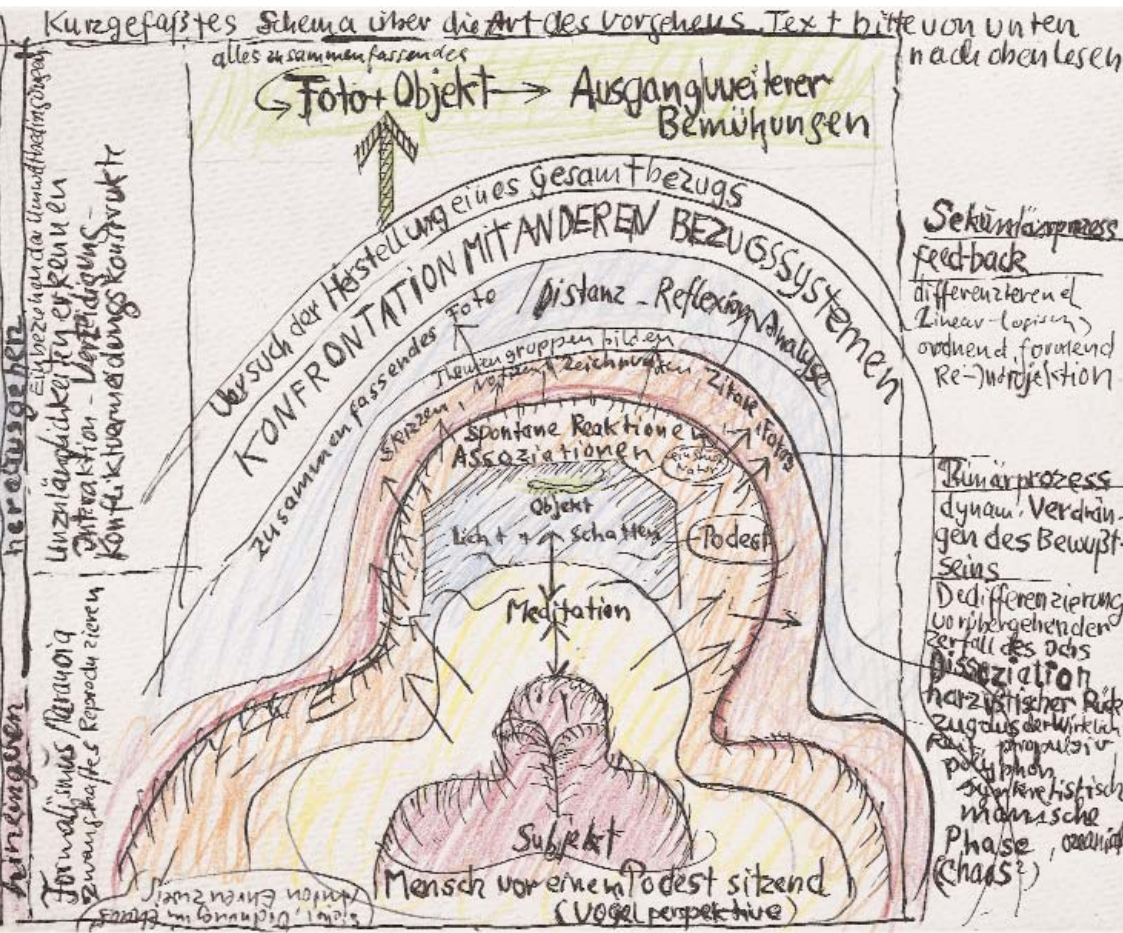 Kurzgefaßtes Schema über die Art des Vorgehens. Text bitte von unten
nach oben lesen
alles zusammenfassendes
Foto + Objekt → Ausgang weiterer
Bemühungen
Versuch der Herstellung eines Gesamtbezugs
KONFRONTATION MIT ANDEREN BEZUGSSYSTEMEN
zusammenfassendes Foto / Distanz - Reflexion, Analyse
Themengruppen bilden
Skizzen, Notizen, Zeichnungen, Zitate, Fotos
Spontane Reaktionen
Assoziationen
Objekt
Licht + Schatten
Podest
Meditation
Subjekt
Mensch vor einem Podest sitzend
(Vogelperspektive)
herausgehen
Einbeziehen der Umweltbedingungen
Unzulänglichkeiten erkennen
Interaktion - Verteidigung-
Konfliktvermeidungskonstrukte
hineingehen
Formalismus / Paranoia
zwanghaftes Reproduzieren
Anton Ehrenzweig
Ordnung im Chaos
Sekundärprozess
feed-back
differenzierend
Linear-logisch
ordnend, formend
Re-Introjektion
Primärprozess
dynam. Verdrän-
gen des Bewußt-
seins
Dedifferenzierung
vorübergehender
Zerfall des Ichs
Dissoziation
narzistischer Rück-
zug aus der Wirklich
keit, propulsiv
polyphon
synkretistisch
manische
Phase, ozeanisch
(Chaos?)